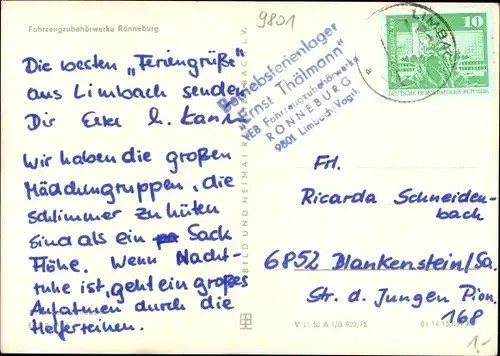 Fahrzeugzubehörwerke Ronneburg
9801
Betriebsferienlager
"Ernst Thälmann"
VEB Fahrzeugzubehörwerke
RONNEBURG
9801 Limbach/Vogtl.
LIMBA
10
DEUTSCHE DEMOKRATISCHE REPUBLIK
Die besten „Feriengrüße"
aus Limbach senden
Dir Erke u.
Wir haben die großen
Mädchengruppen, die
schlimmer zu hüten
sind als ein Sack
Flöhe. Wenn Nacht-
ruhe ist, geht ein großes
Aufatmen durch die
Helferreihen.
BILD UND HEIMAT REICHENBACH I. V.
Frl.
Ricarda Schneiden-
bach
6852 Blankenstein/Sa.
Str. d. Jungen Pion.
168
V 11 50 A 1/B 922/75
01 14 15
1.-